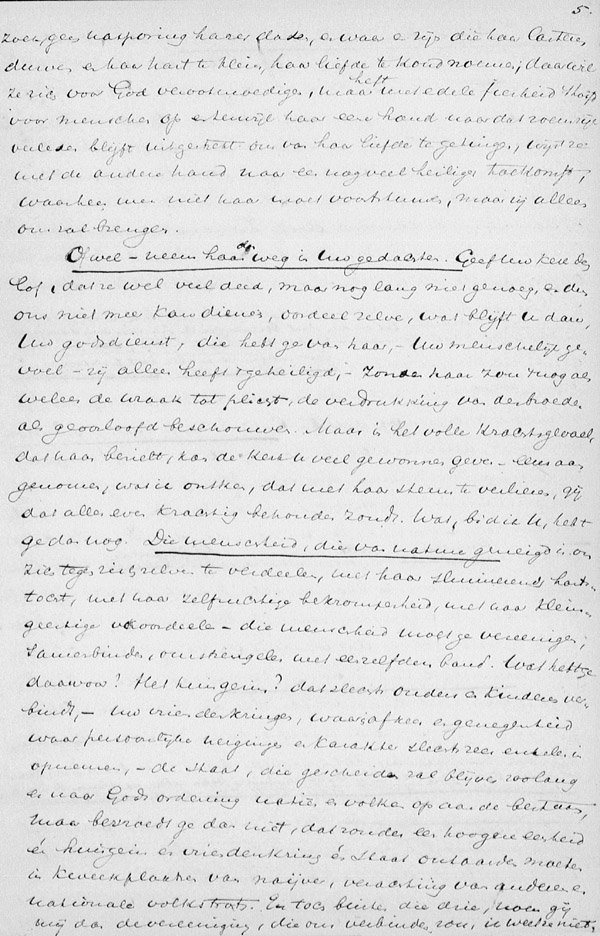 5.
zoek, geen nasporing harer daden, en waar er zijn die haar
deuren en haar hart te klein, haar liefde te koud noemen, daar wil
ze zich voor God verootmoedigen, maar met edele fierheid heft
voor menschen op en terwijl haar eene hand naar dat
verleden blijft uitgestrekt om van haar liefde te getuigen, wijst ze
met de andere hand naar een nog veel heiliger toekomst,
waarheen men niet haar moet voortsturen, maar zij alleen
ons zal brengen.
Of wel – neem haar dan weg in Uw gedachten. Geef Uw kerk den
lof, dat ze wel veel deed, maar nog lang niet genoeg, en dus
ons niet meer kan dienen, oordeel zelve, wat blijft U dan,
Uw godsdienst, die hebt ge van haar, – Uw menschelijk ge-
voel – zij alleen heeft 't geheiligd, – zonder haar zou 't nog als
weleer de wraak tot plicht, de verdrukking van den broeder
als geoorloofd beschouwen. Maar in het volle krachtsgevoel,
dat haar bezielt, kan de Kerk U veel gewonnen geven – eens aan-
genomen, wat ik ontken, dat met haar steun te verliezen, gij
dat alles even krachtig behouden zoudt. Wat, bid ik U, hebt
ge dan nog. Die menschheid, die van nature geneigd is om
zich tegen zich zelve te verdeelen, met haar sluimerend harts-
tocht, met haar zelfzuchtige bekrompenheid, met haar klein-
geestige vooroordeelen – die menschheid moet ge vereenigen,
samenbinden, omstrengelen met eenzelfden band. Wat hebt ge
daarvoor? Het huisgezin? dat slechts ouders en kinderen ver-
bindt, – Uw vriendenkringen, waarin afkeer en genegenheid
waar persoonlijke neiging en karakter slechts zeer enkelen in
opnemen, – de Staat, die gescheiden zal blijven zoolang
er naar Gods ordening natiën en volken op aarde bestaan,
maar bevroedt ge dan niet, dat zonder een hoogere eenheid
én huisgezin én vriendenkring én Staat ontaarden moeten
in kweekplaatsen van naijver, verachting van anderen en
nationale volkstrots. En toch buiten die drie, noem gij
mij dan de vereeniging, die ons verbinden zou, ik weet ze niet.